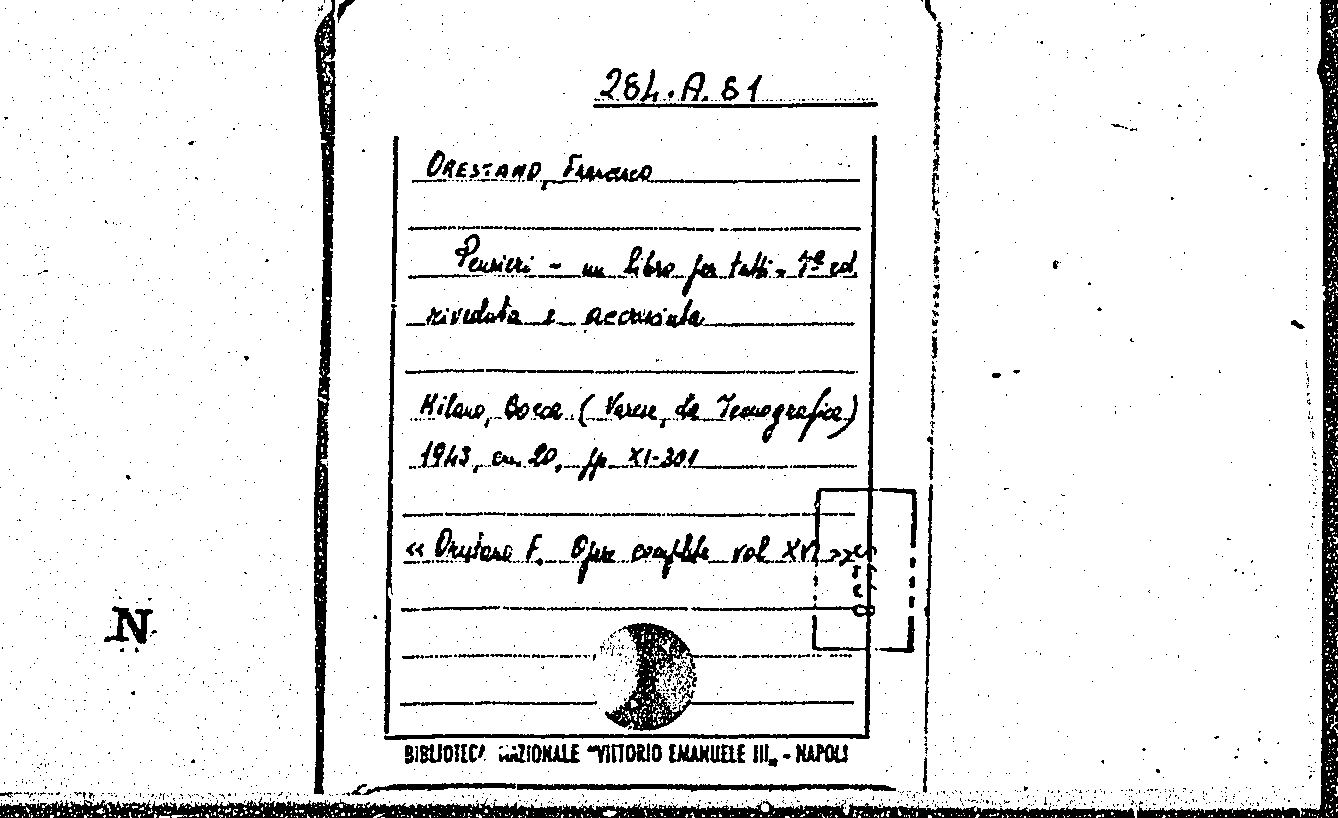 284.A.81
ORESTANO, Francesco
Pensieri - un libro per tutti. 7ª ed.
riveduta e accresciuta
Milano, Bocca (Varese, La Tecnografica)
1943, cm. 20, pp. XI-301
« Orestano F. Opere complete vol XVI »
N
BIBLIOTECA NAZIONALE "VITTORIO EMANUELE III„ - NAPOLI